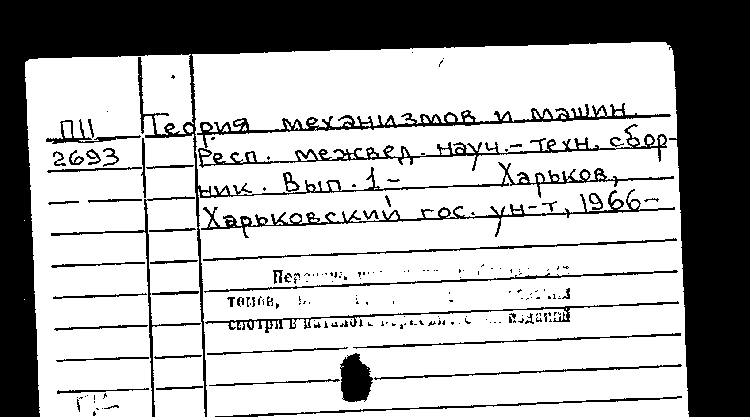 П11 Теория механизмов и машин.
2693 Респ. межвед. науч.-техн. сбор-
ник. Вып. 1- Харьков,
Харьковский гос. ун-т, 1966-
томов,
смотри в каталоге изданий